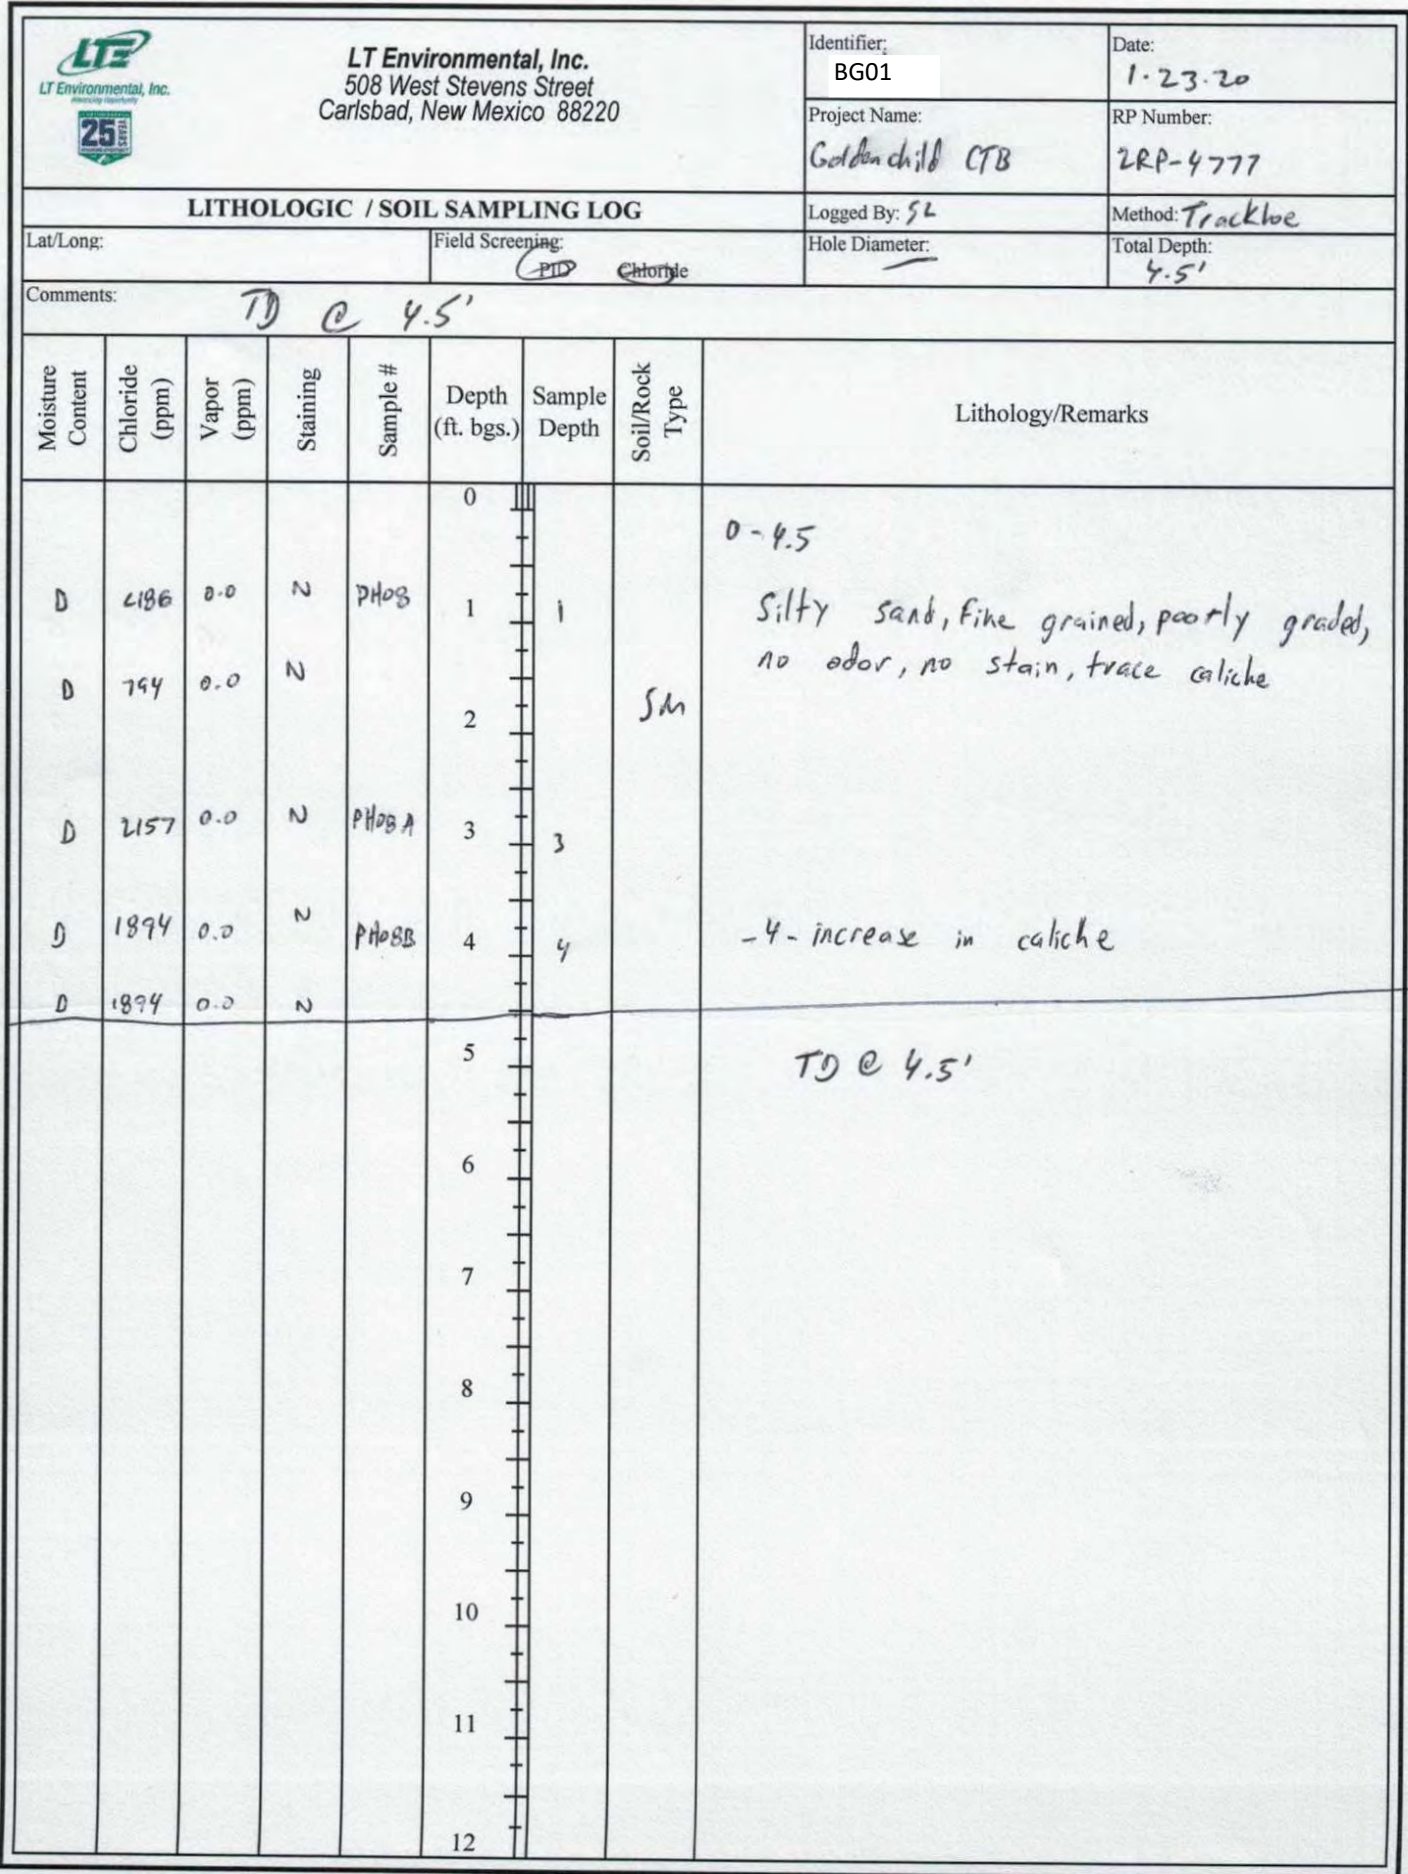 LTE
LT Environmental, Inc.
Advancing Opportunity
25 YEARS
LT Environmental, Inc.
508 West Stevens Street
Carlsbad, New Mexico 88220
Identifier:
BG01
Date:
1.23.20
Project Name:
Goldenchild CTB
RP Number:
2RP-4777
LITHOLOGIC / SOIL SAMPLING LOG
Logged By: SL
Method: Trackhoe
Lat/Long:
Field Screening:
PID Chloride
Hole Diameter:
Total Depth:
4.5'
Comments: TD @ 4.5'
Moisture Content
Chloride (ppm)
Vapor (ppm)
Staining
Sample #
Depth (ft. bgs.)
Sample Depth
Soil/Rock Type
Lithology/Remarks
0
0-4.5
D <186 0.0 N PH08 1 1 Silty sand, fine grained, poorly graded,
no odor, no stain, trace caliche
D 794 0.0 N
2 SM
D 2157 0.0 N PH08A 3 3
D 1894 0.0 N PH08B 4 4 -4- increase in caliche
D 1894 0.0 N
5 TD @ 4.5'
6
7
8
9
10
11
12